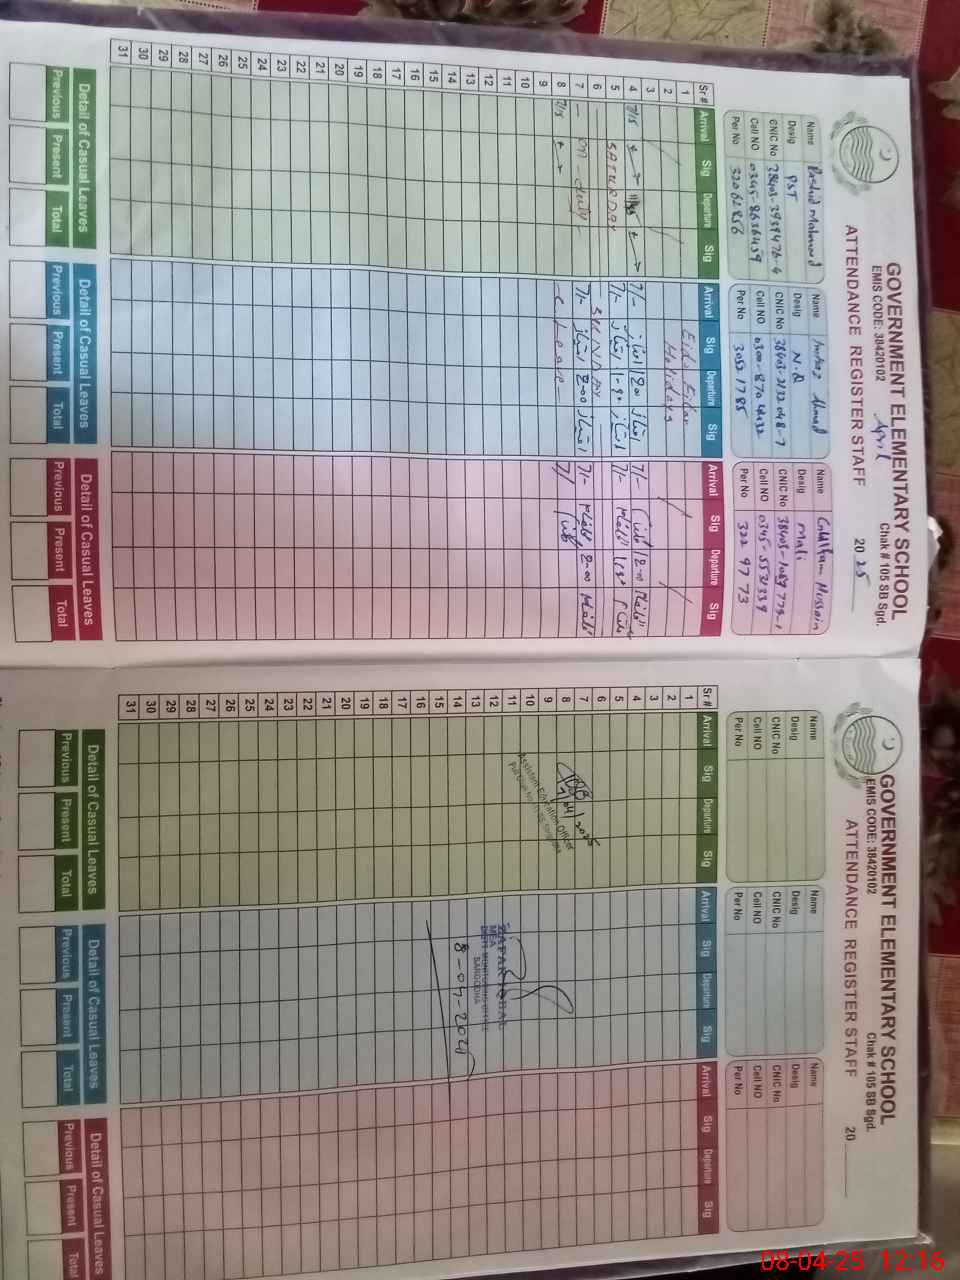 GOVERNMENT ELEMENTARY SCHOOL
EMIS CODE: 38420102
Chak # 105 SB Sgd.
April
ATTENDANCE REGISTER STAFF
20 25
Name Rashid Mahmood
Desig PST
CNIC No
Cell NO 0345-8636459
Per No 32062856
Name Imtiaz Ahmad
Desig N.Q
CNIC No 38403-2132048-7
Cell NO 0300-8704432
Per No 30521785
Name Gulfam Hussain
Desig Mali
CNIC No
Cell NO 0345-5531339
Per No 3229773
Sr # Arrival Sig Departure Sig Arrival Sig Departure Sig Arrival Sig Departure Sig
1 Eid ul Fitar
2 Holidays
3
4 7/15 7/- امتیاز 12:00 امتیاز 7/- 12:00
5 SATURDAY 7/- امتیاز امتیاز 7/-
6 SUNDAY
7 on duty 7/- امتیاز 2-00 امتیاز 7/- 2-00
8 7/15 C. Leave 7/
9
10
11
12
13
14
15
16
17
18
19
20
21
22
23
24
25
26
27
28
29
30
31
Detail of Casual Leaves Detail of Casual Leaves Detail of Casual Leaves
Previous Present Total Previous Present Total Previous Present Total
GOVERNMENT ELEMENTARY SCHOOL
EMIS CODE: 38420102
Chak # 105 SB Sgd.
ATTENDANCE REGISTER STAFF
20
Name
Desig
CNIC No
Cell NO
Per No
Name
Desig
CNIC No
Cell NO
Per No
Name
Desig
CNIC No
Cell NO
Per No
Sr # Arrival Sig Departure Sig Arrival Sig Departure Sig Arrival Sig Departure Sig
1
2
3
4
5
6
7
8
9
10
11
12
13
14
15
16
17
18
19
20
21
22
23
24
25
26
27
28
29
30
31
7/04/2025
Assistant Education Officer
ZAFAR IQBAL
MEA
DISTT MONITORING OFFICE
SARGODHA
8-04-2025
Detail of Casual Leaves Detail of Casual Leaves Detail of Casual Leaves
Previous Present Total Previous Present Total Previous Present Total
08-04-25 12:16